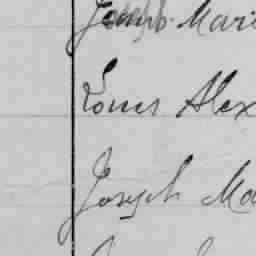 Joseph Mari
Louis Alex
Joseph Ma